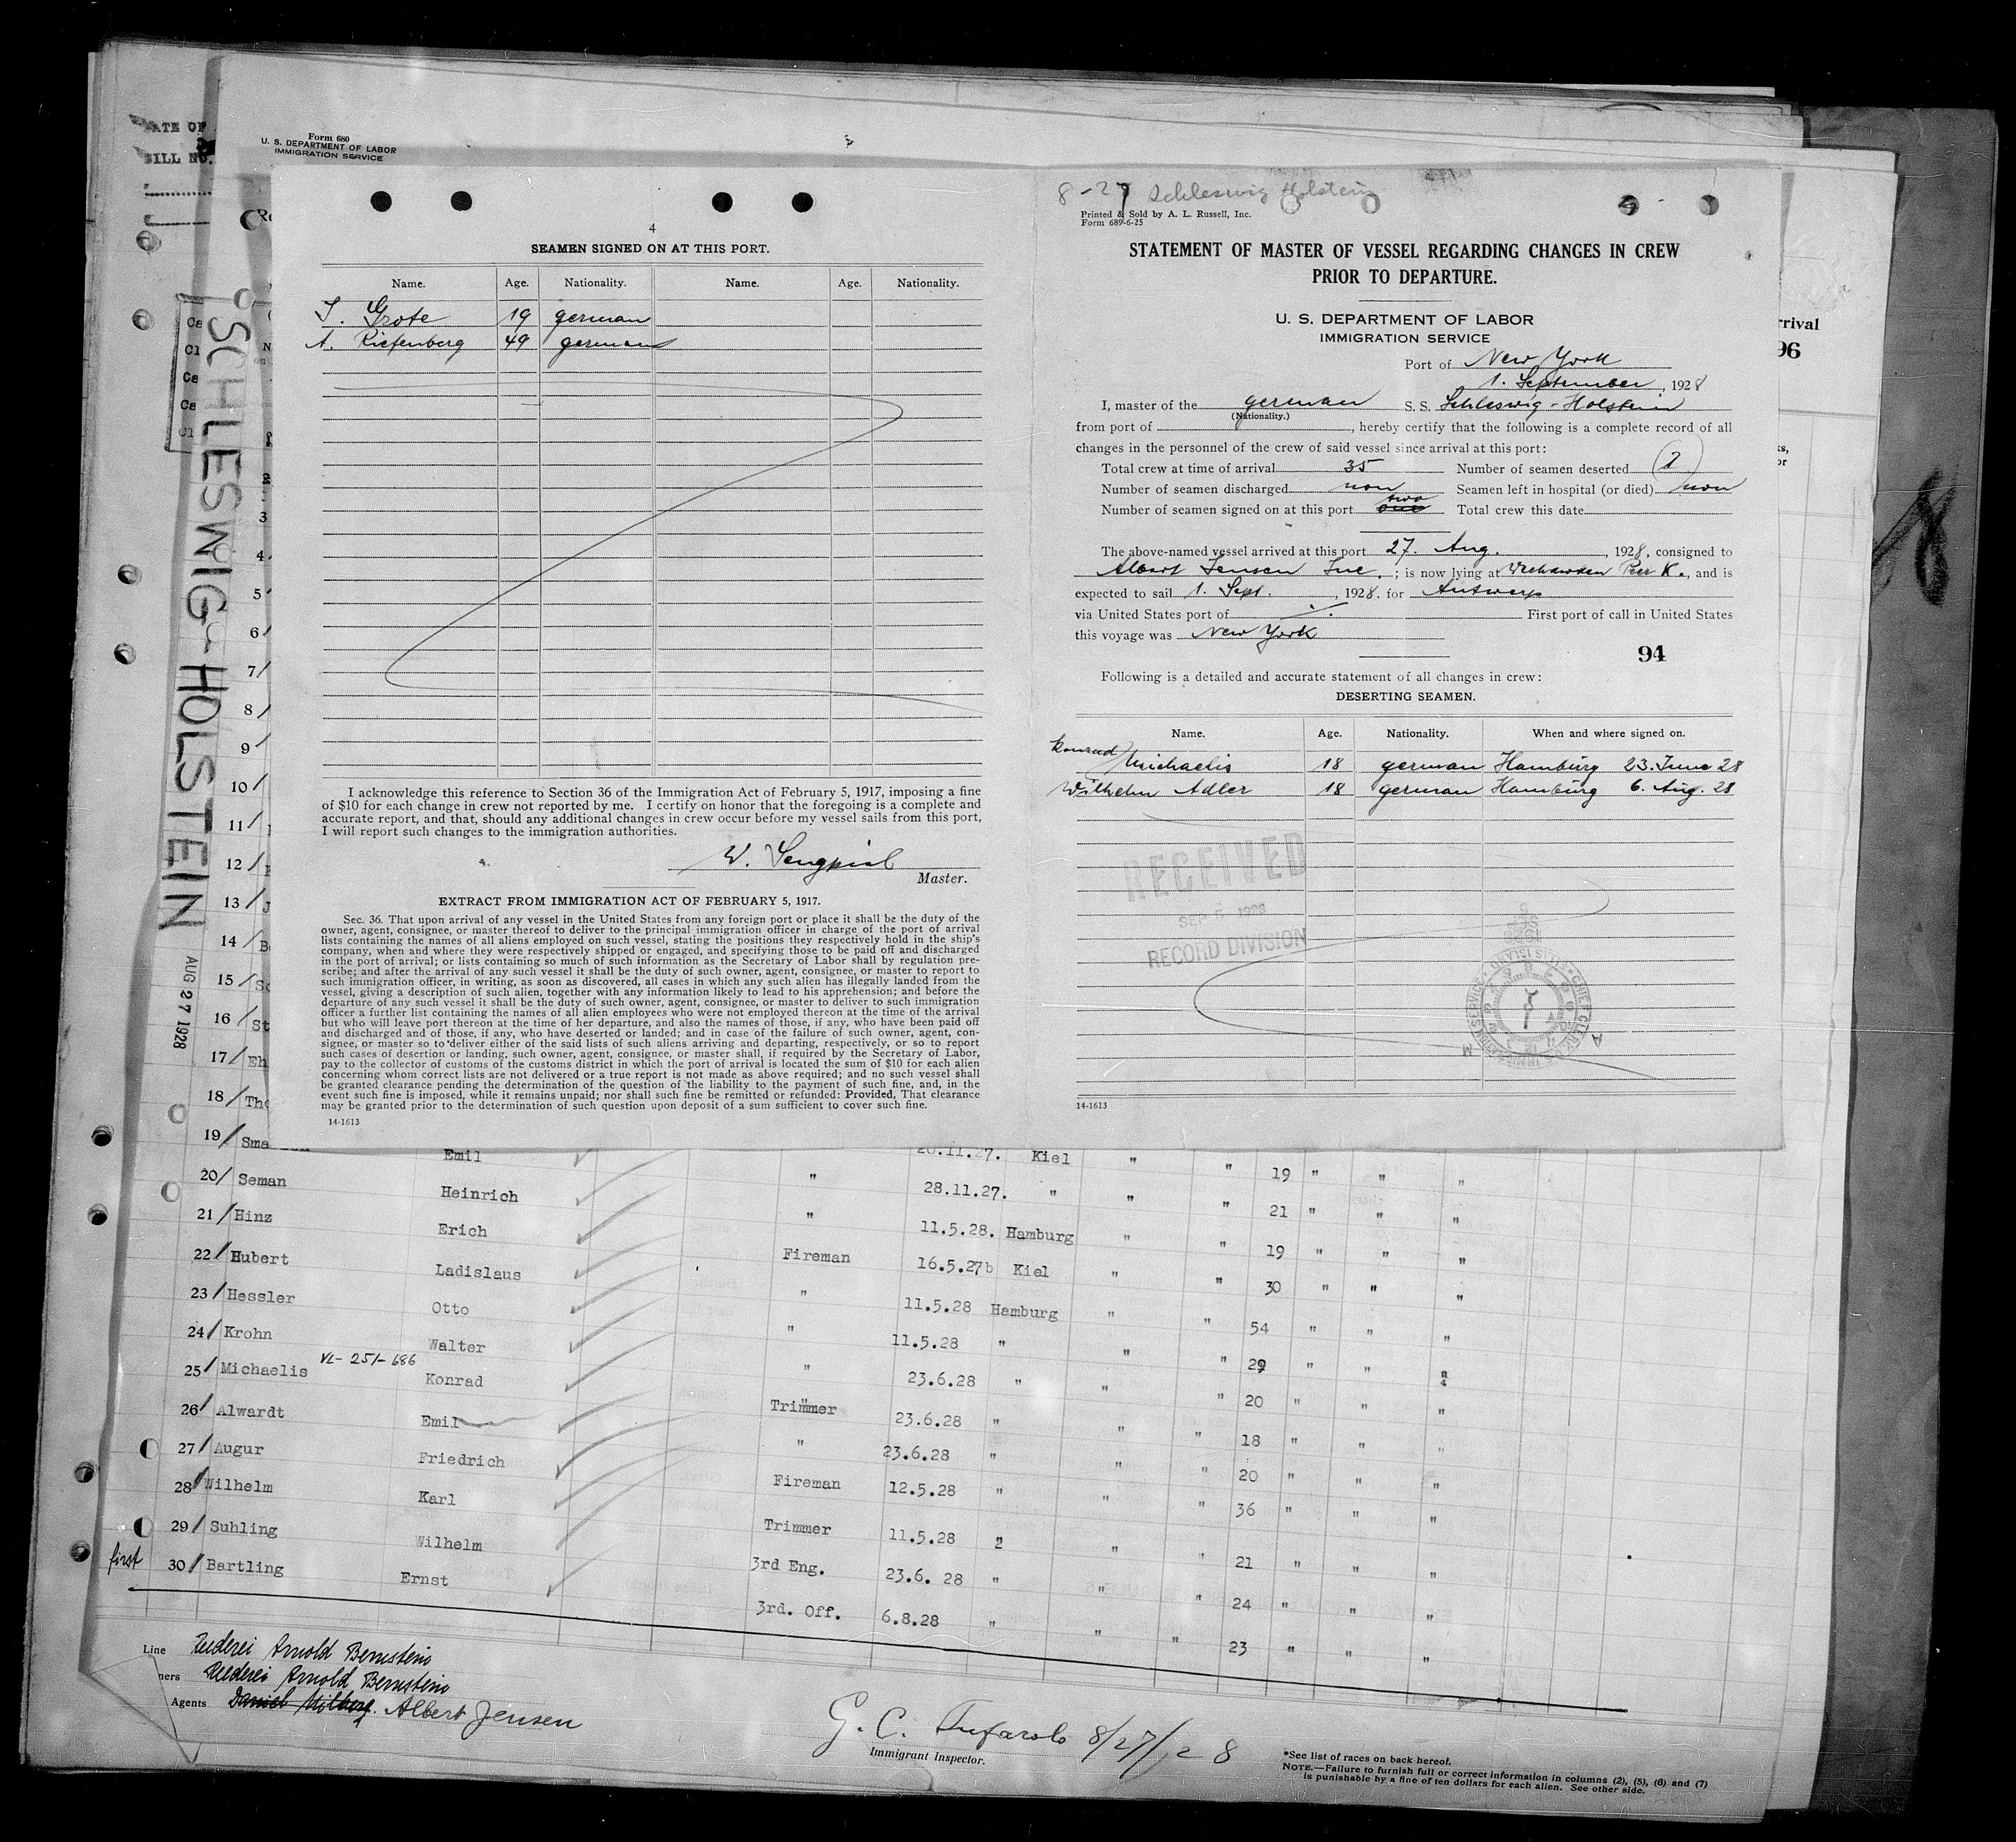 DATE OF
BILL NO.
Form 680
U. S. DEPARTMENT OF LABOR
IMMIGRATION SERVICE
SCHLESWIG-HOLSTEIN
AUG 27 1928
4
SEAMEN SIGNED ON AT THIS PORT.
Name. Age. Nationality. Name. Age. Nationality.
Grote 19 german
A. Riefenberg 49 german
I acknowledge this reference to Section 36 of the Immigration Act of February 5, 1917, imposing a fine
of $10 for each change in crew not reported by me. I certify on honor that the foregoing is a complete and
accurate report, and that, should any additional changes in crew occur before my vessel sails from this port,
I will report such changes to the immigration authorities.
W.
Master.
EXTRACT FROM IMMIGRATION ACT OF FEBRUARY 5, 1917.
Sec. 36. That upon arrival of any vessel in the United States from any foreign port or place it shall be the duty of the
owner, agent, consignee, or master thereof to deliver to the principal immigration officer in charge of the port of arrival
lists containing the names of all aliens employed on such vessel, stating the positions they respectively hold in the ship's
company, when and where they were respectively shipped or engaged, and specifying those to be paid off and discharged
in the port of arrival; or lists containing so much of such information as the Secretary of Labor shall by regulation pre-
scribe; and after the arrival of any such vessel it shall be the duty of such owner, agent, consignee, or master to report to
such immigration officer, in writing, as soon as discovered, all cases in which any such alien has illegally landed from the
vessel, giving a description of such alien, together with any information likely to lead to his apprehension; and before the
departure of any such vessel it shall be the duty of such owner, agent, consignee, or master to deliver to such immigration
officer a further list containing the names of all alien employees who were not employed thereon at the time of the arrival
but who will leave port thereon at the time of her departure, and also the names of those, if any, who have been paid off
and discharged and of those, if any, who have deserted or landed; and in case of the failure of such owner, agent, con-
signee, or master so to deliver either of the said lists of such aliens arriving and departing, respectively, or so to report
such cases of desertion or landing, such owner, agent, consignee, or master shall, if required by the Secretary of Labor,
pay to the collector of customs of the customs district in which the port of arrival is located the sum of $10 for each alien
concerning whom correct lists are not delivered or a true report is not made as above required; and no such vessel shall
be granted clearance pending the determination of the question of the liability to the payment of such fine, and, in the
event such fine is imposed, while it remains unpaid; nor shall such fine be remitted or refunded: Provided, That clearance
may be granted prior to the determination of such question upon deposit of a sum sufficient to cover such fine.
14-1613
8-27 Schleswig Holstein
Printed & Sold by A. L. Russell, Inc.
Form 689-6-25
STATEMENT OF MASTER OF VESSEL REGARDING CHANGES IN CREW
PRIOR TO DEPARTURE.
U. S. DEPARTMENT OF LABOR
IMMIGRATION SERVICE
Port of New York
1. September, 1928
I, master of the german S. S. Schleswig-Holstein
(Nationality.)
from port of , hereby certify that the following is a complete record of all
changes in the personnel of the crew of said vessel since arrival at this port:
Total crew at time of arrival 35 Number of seamen deserted 2
Number of seamen discharged non Seamen left in hospital (or died) non
two
Number of seamen signed on at this port one Total crew this date
The above-named vessel arrived at this port 27. Aug., 1928, consigned to
Albert Jensen Inc.; is now lying at Weehawken Pier K., and is
expected to sail 1. Sept., 1928. for Antwerp
via United States port of ./. First port of call in United States
this voyage was New York
94
Following is a detailed and accurate statement of all changes in crew:
DESERTING SEAMEN.
Name. Age. Nationality. When and where signed on.
Konrad Michaelis 18 german Hamburg 23. June 28
Wilhelm Adler 18 german Hamburg 6. Aug. 28
RECEIVED
SEP 5 1928
RECORD DIVISION
14-1613
rrival
96
3
4
5
6
7
8
9
10
11
12
13
14
15
16 St
17 Eh
18 Tho
19 Sma Emil 20.11.27. Kiel " " 19 " " "
20 Seman Heinrich " 28.11.27. " " " 21 " " "
21 Hinz Erich " 11.5.28. Hamburg " " 19 " " "
22 Hubert Ladislaus Fireman 16.5.27 Kiel " " 30 " " "
23 Hessler Otto " 11.5.28 Hamburg " " 54 " " "
24 Krohn Walter " 11.5.28 " " " 29 " " "
25 Michaelis VL-251-686 Konrad " 23.6.28 " " " 20 " " "
26 Alwardt Emil Trimmer 23.6.28 " " " 18 " " "
27 Augur Friedrich " 23.6.28 " " " 20 " " "
28 Wilhelm Karl Fireman 12.5.28 " " " 36 " " "
29 Suhling Wilhelm Trimmer 11.5.28 " " " 21 " " "
first 30 Bartling Ernst 3rd Eng. 23.6. 28 " " " 24 " " "
3rd. Off. 6.8.28 " " " 23 " " "
Line Reederei Arnold Bernstein
ners Reederei Arnold Bernstein
Agents Albert Jensen
G. C. Tufarolo 8/27/28
Immigrant Inspector.
*See list of races on back hereof.
NOTE.—Failure to furnish full or correct information in columns (2), (5), (6) and (7)
is punishable by a fine of ten dollars for each alien. See other side.